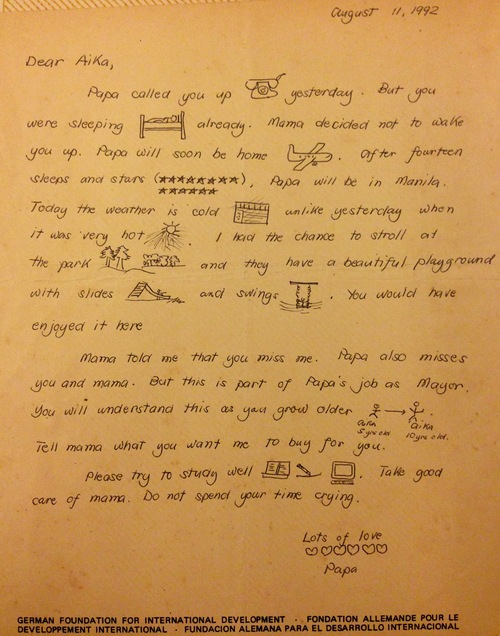 August 11, 1992
Dear Aika,
Papa called you up yesterday. But you
were sleeping already. Mama decided not to wake
you up. Papa will soon be home. After fourteen
sleeps and stars (★★★★★★★★
★★★★★★), Papa will be in Manila.
Today the weather is cold unlike yesterday when
it was very hot. I had the chance to stroll at
the park and they have a beautiful playground
with slides and swings. You would have
enjoyed it here
Mama told me that you miss me. Papa also misses
you and mama. But this is part of Papa's job as Mayor.
You will understand this as you grow older → .
aika 5 yrs old aika 10 yrs old.
Tell mama what you want me to buy for you.
Please try to study well. Take good
care of mama. Do not spend your time crying.
Lots of love
♡♡♡♡♡♡
Papa
GERMAN FOUNDATION FOR INTERNATIONAL DEVELOPMENT · FONDATION ALLEMANDE POUR LE
DEVELOPPEMENT INTERNATIONAL · FUNDACION ALEMANA PARA EL DESARROLLO INTERNACIONAL